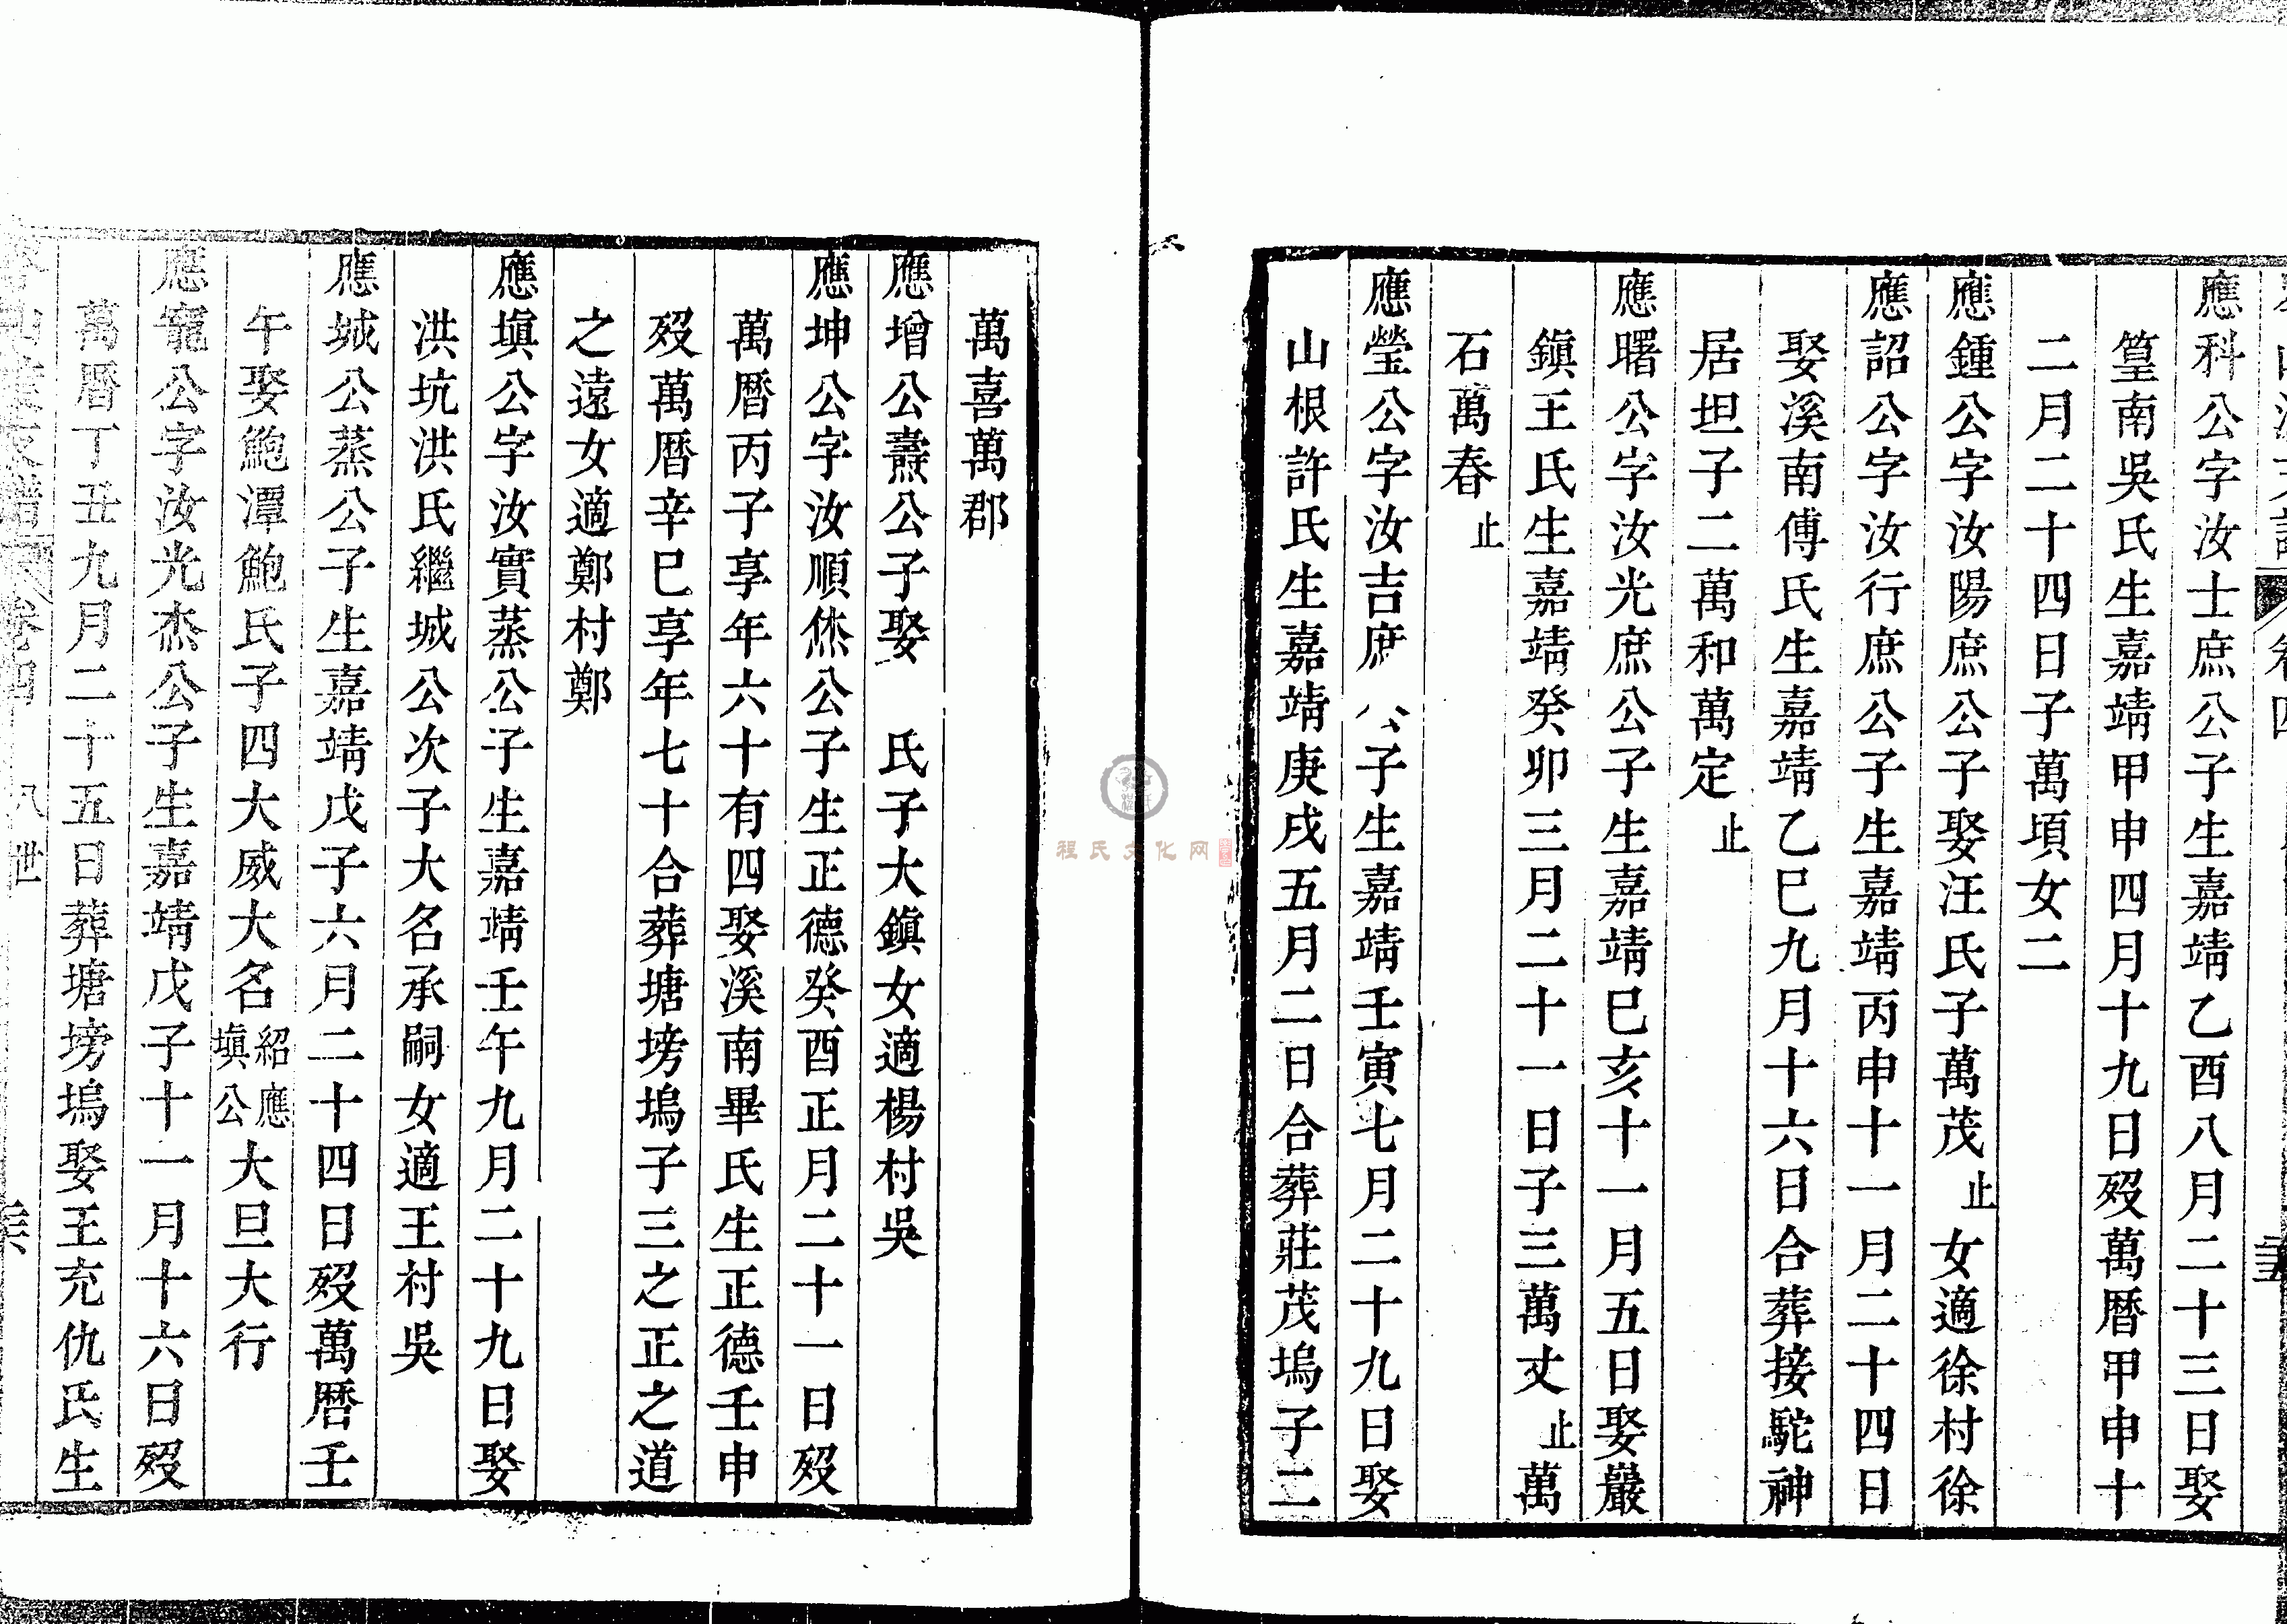 應科公字汝士庶公子生嘉靖乙酉八月二十三日娶
篁南吳氏生嘉靖甲申四月十九日歿萬曆甲申十
二月二十四日子萬頃女二
應鍾公字汝陽庶公子娶汪氏子萬茂止女適徐村徐
應詔公字汝行庶公子生嘉靖丙申十一月二十四日
娶溪南傅氏生嘉靖乙巳九月十六日合葬接駝神
居坦子二萬和萬定止
應曙公字汝光庶公子生嘉靖巳亥十一月五日娶巖
鎮王氏生嘉靖癸卯三月二十一日子三萬丈止萬
石萬春止
應瑩公字汝吉庶公子生嘉靖壬寅七月二十九日娶
山根許氏生嘉靖庚戌五月二日合葬莊茂塢子二
萬喜萬郡
應增公燾公子娶 氏子大鎮女適楊村吳
應坤公字汝順烋公子生正德癸酉正月二十一日歿
萬曆丙子享年六十有四娶溪南畢氏生正德壬申
歿萬曆辛巳享年七十合葬塘塝塢子三之正之道
之遠女適鄭村鄭
應塡公字汝實蒸公子生嘉靖壬午九月二十九日娶
洪坑洪氏繼城公次子大名承嗣女適王村吳
應城公蒸公子生嘉靖戊子六月二十四日歿萬曆壬
午娶鮑潭鮑氏子四大威大名紹應塡公大旦大行
應寵公字汝光杰公子生嘉靖戊子十一月十六日歿
萬曆丁丑九月二十五日葬塘塝塢娶王充仇氏生
卷四 八世
程氏文化网